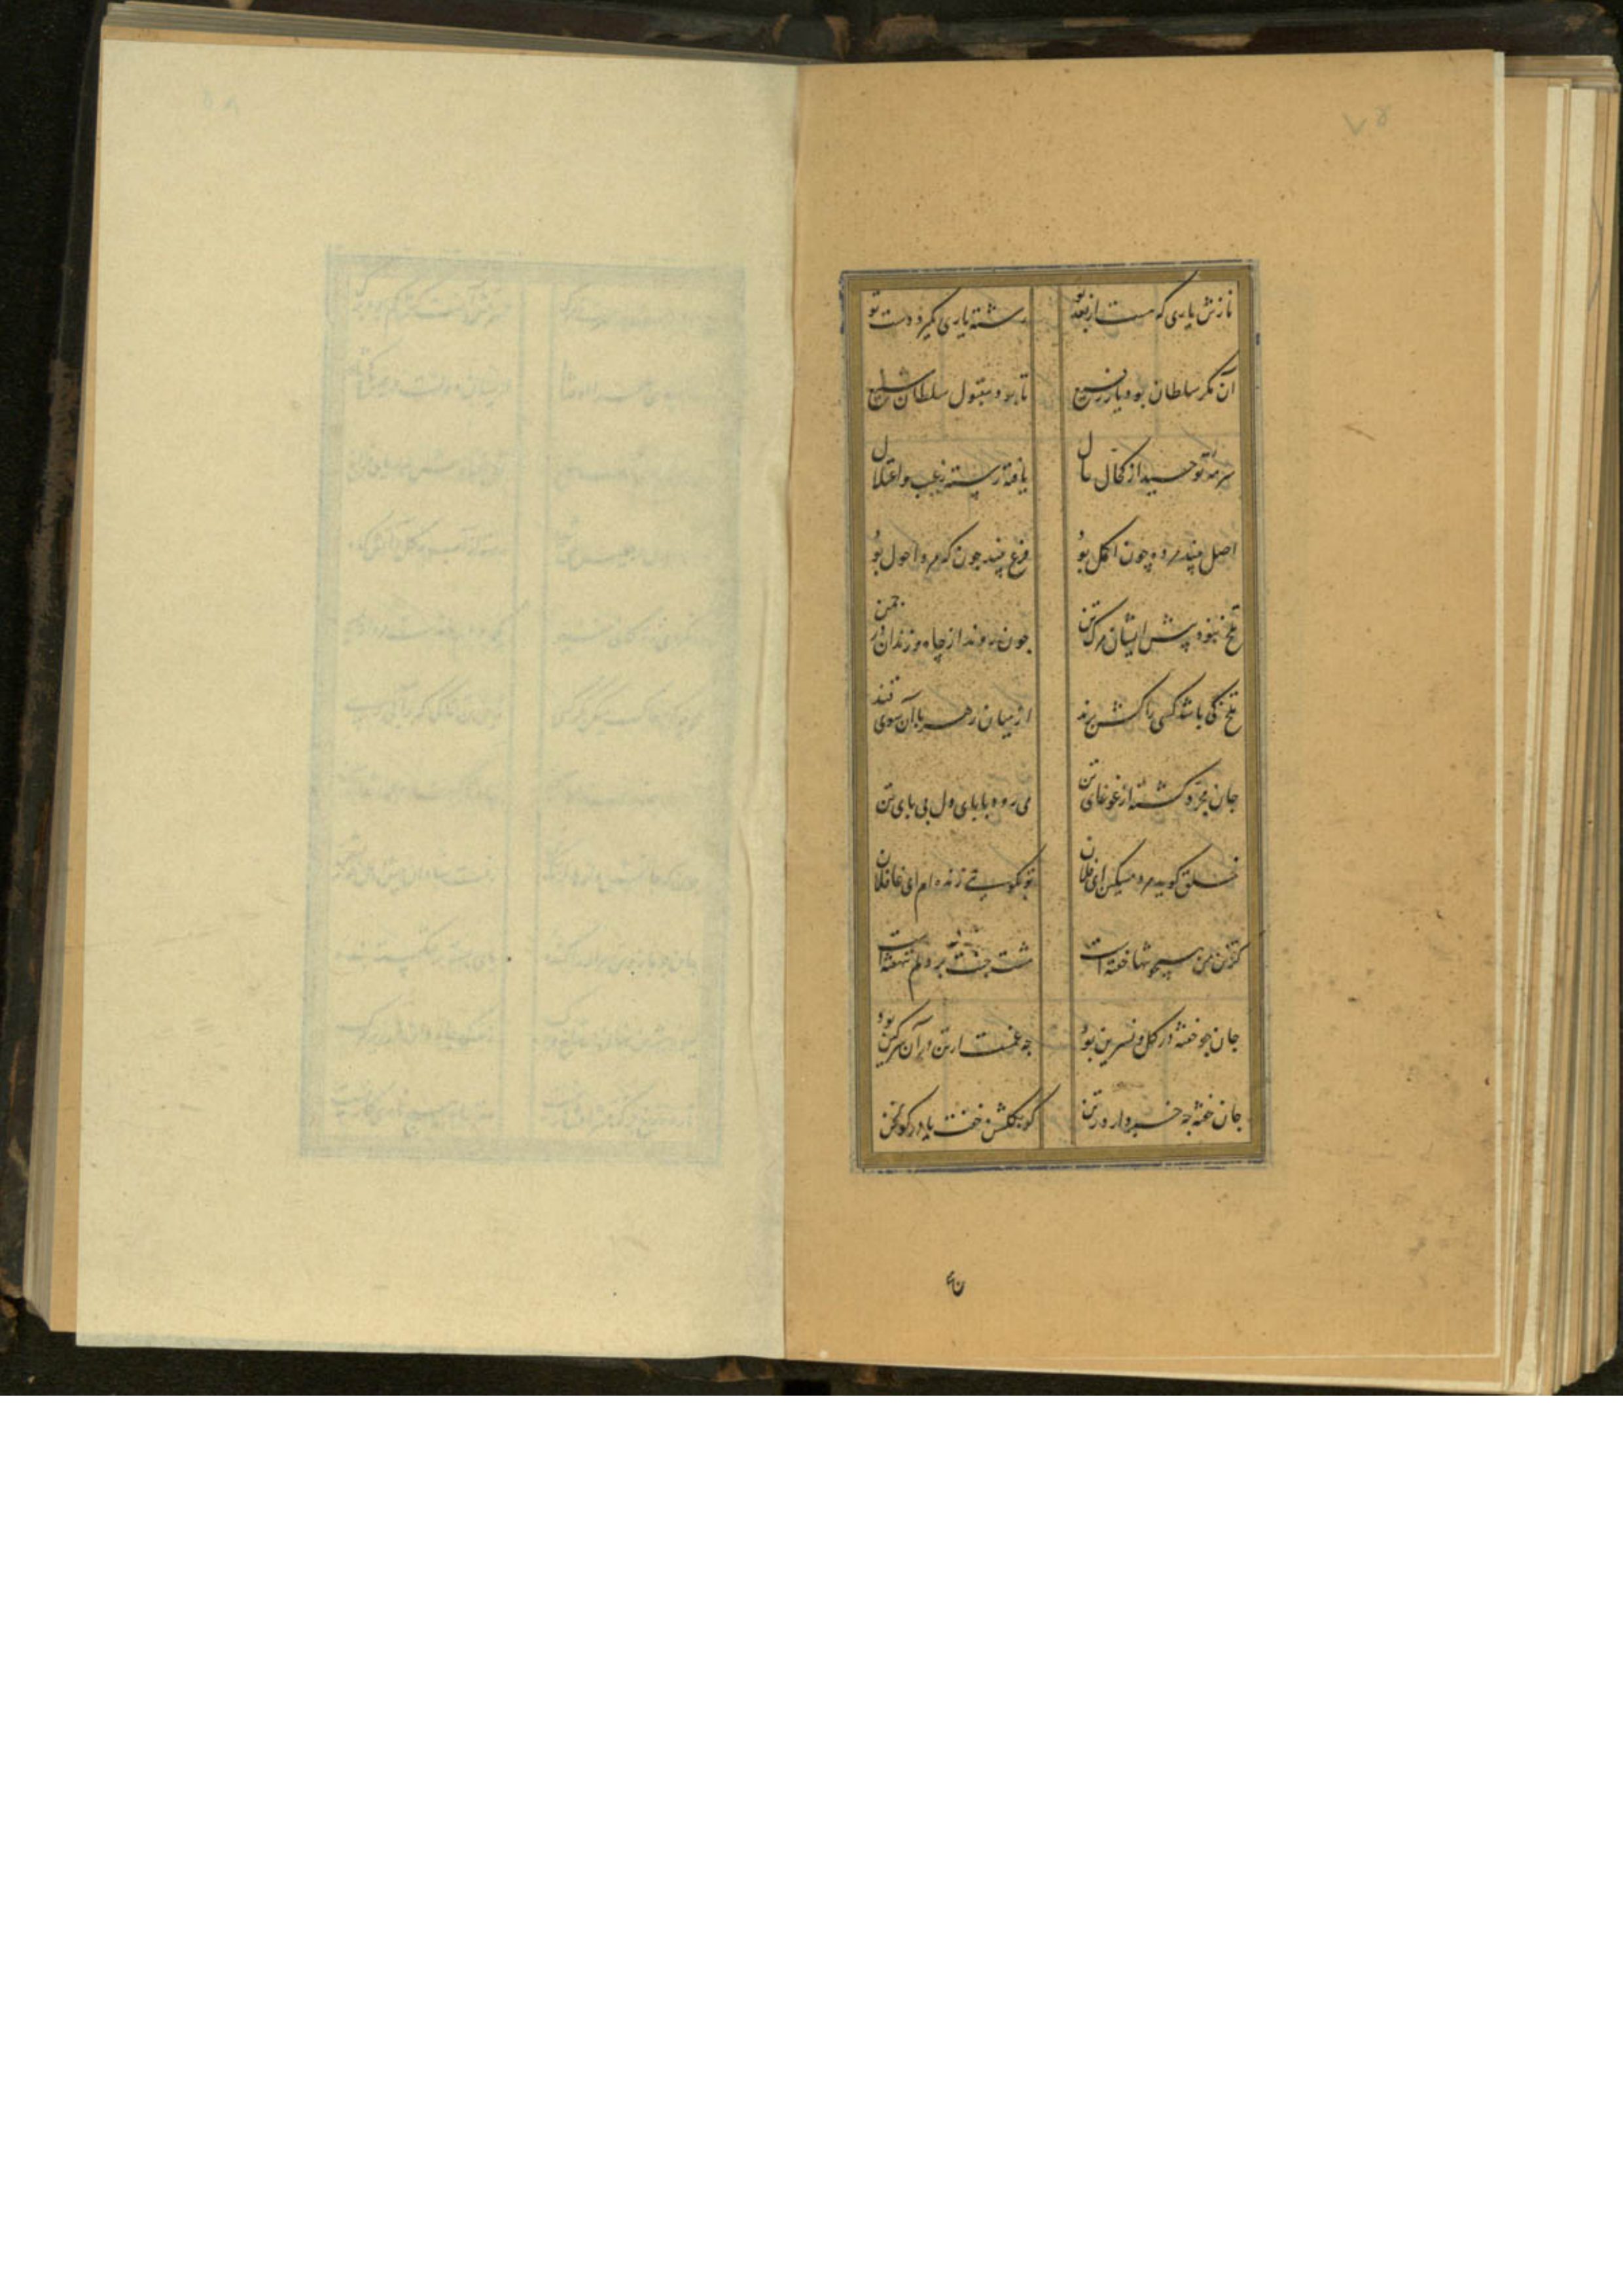 نازش یاری که هست از بعد تو رشته یاری بگیرد دست تو
آن مگر سلطان بود یار رفیع تا بود مقبول سلطان شفیع
سرمه توحید از کحال حال یافته رسته ز عیب و اعتلال
اصل بیند مرد چون اکمل بود فرع بیند چون که مرد احول بود
تلخ نبود پیش ایشان مرگ تن چون روند از چاه و زندان در چمن
تلخ کی باشد کسی را کش برند از میان زهر ماران سوی قند
جان مجرد گشته از غوغای تن می رود با پای دل بی پای تن
خلق گوید مرد مسکین ای فلان تو بگویی زنده ام ای غافلان
گر تن من همچو تنها خفته است هشت جنت بر دلم نشکفته است
جان چو خفته در گل و نسرین بود چه غمست ار تن در آن سرگین بود
جان خفته چه خبر دارد ز تن کو بگلشن خفت یا در گولخن